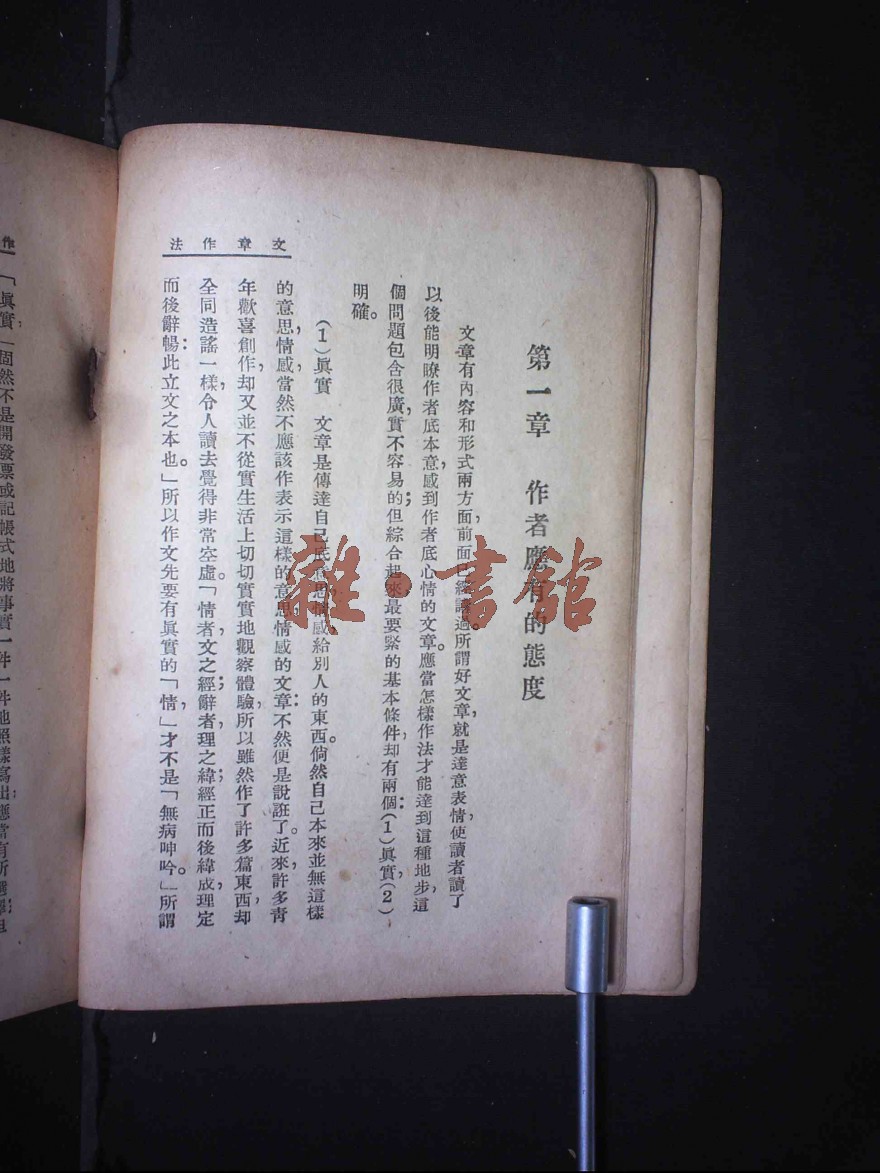 文章作法
第一章　作者應有的態度
文章有內容和形式兩方面，前面已經講過。所謂好文章，就是達意表情，使讀者讀了
以後能明瞭作者底本意，感到作者底心情的文章。應當怎樣作法才能達到這種地步，這
個問題包含很廣，實不容易的；但綜合起來，最要緊的基本條件，却有兩個：(1)眞實，(2)
明確。
(1)眞實　文章是傳達自己底意思情感給別人的東西。倘然自己本來並無這樣
的意思，情感，當然不應該作表示這樣的意思情感的文章；不然便是說誑了。近來許多靑
年歡喜創作，却又並不從實生活上切切實實地觀察體驗，所以雖然作了許多篇東西，却
全同造謠一樣，令人讀去覺得非常空虛。「情者文之經，辭者理之緯；經正而後緯成，理定
而後辭暢：此立文之本也。」所以作文先要有眞實的「情」，才不是「無病呻吟。」所謂
「眞實」固然不是開發票或記帳式地將事實一件一件地照樣寫出，應當有所選擇；
雜·書館